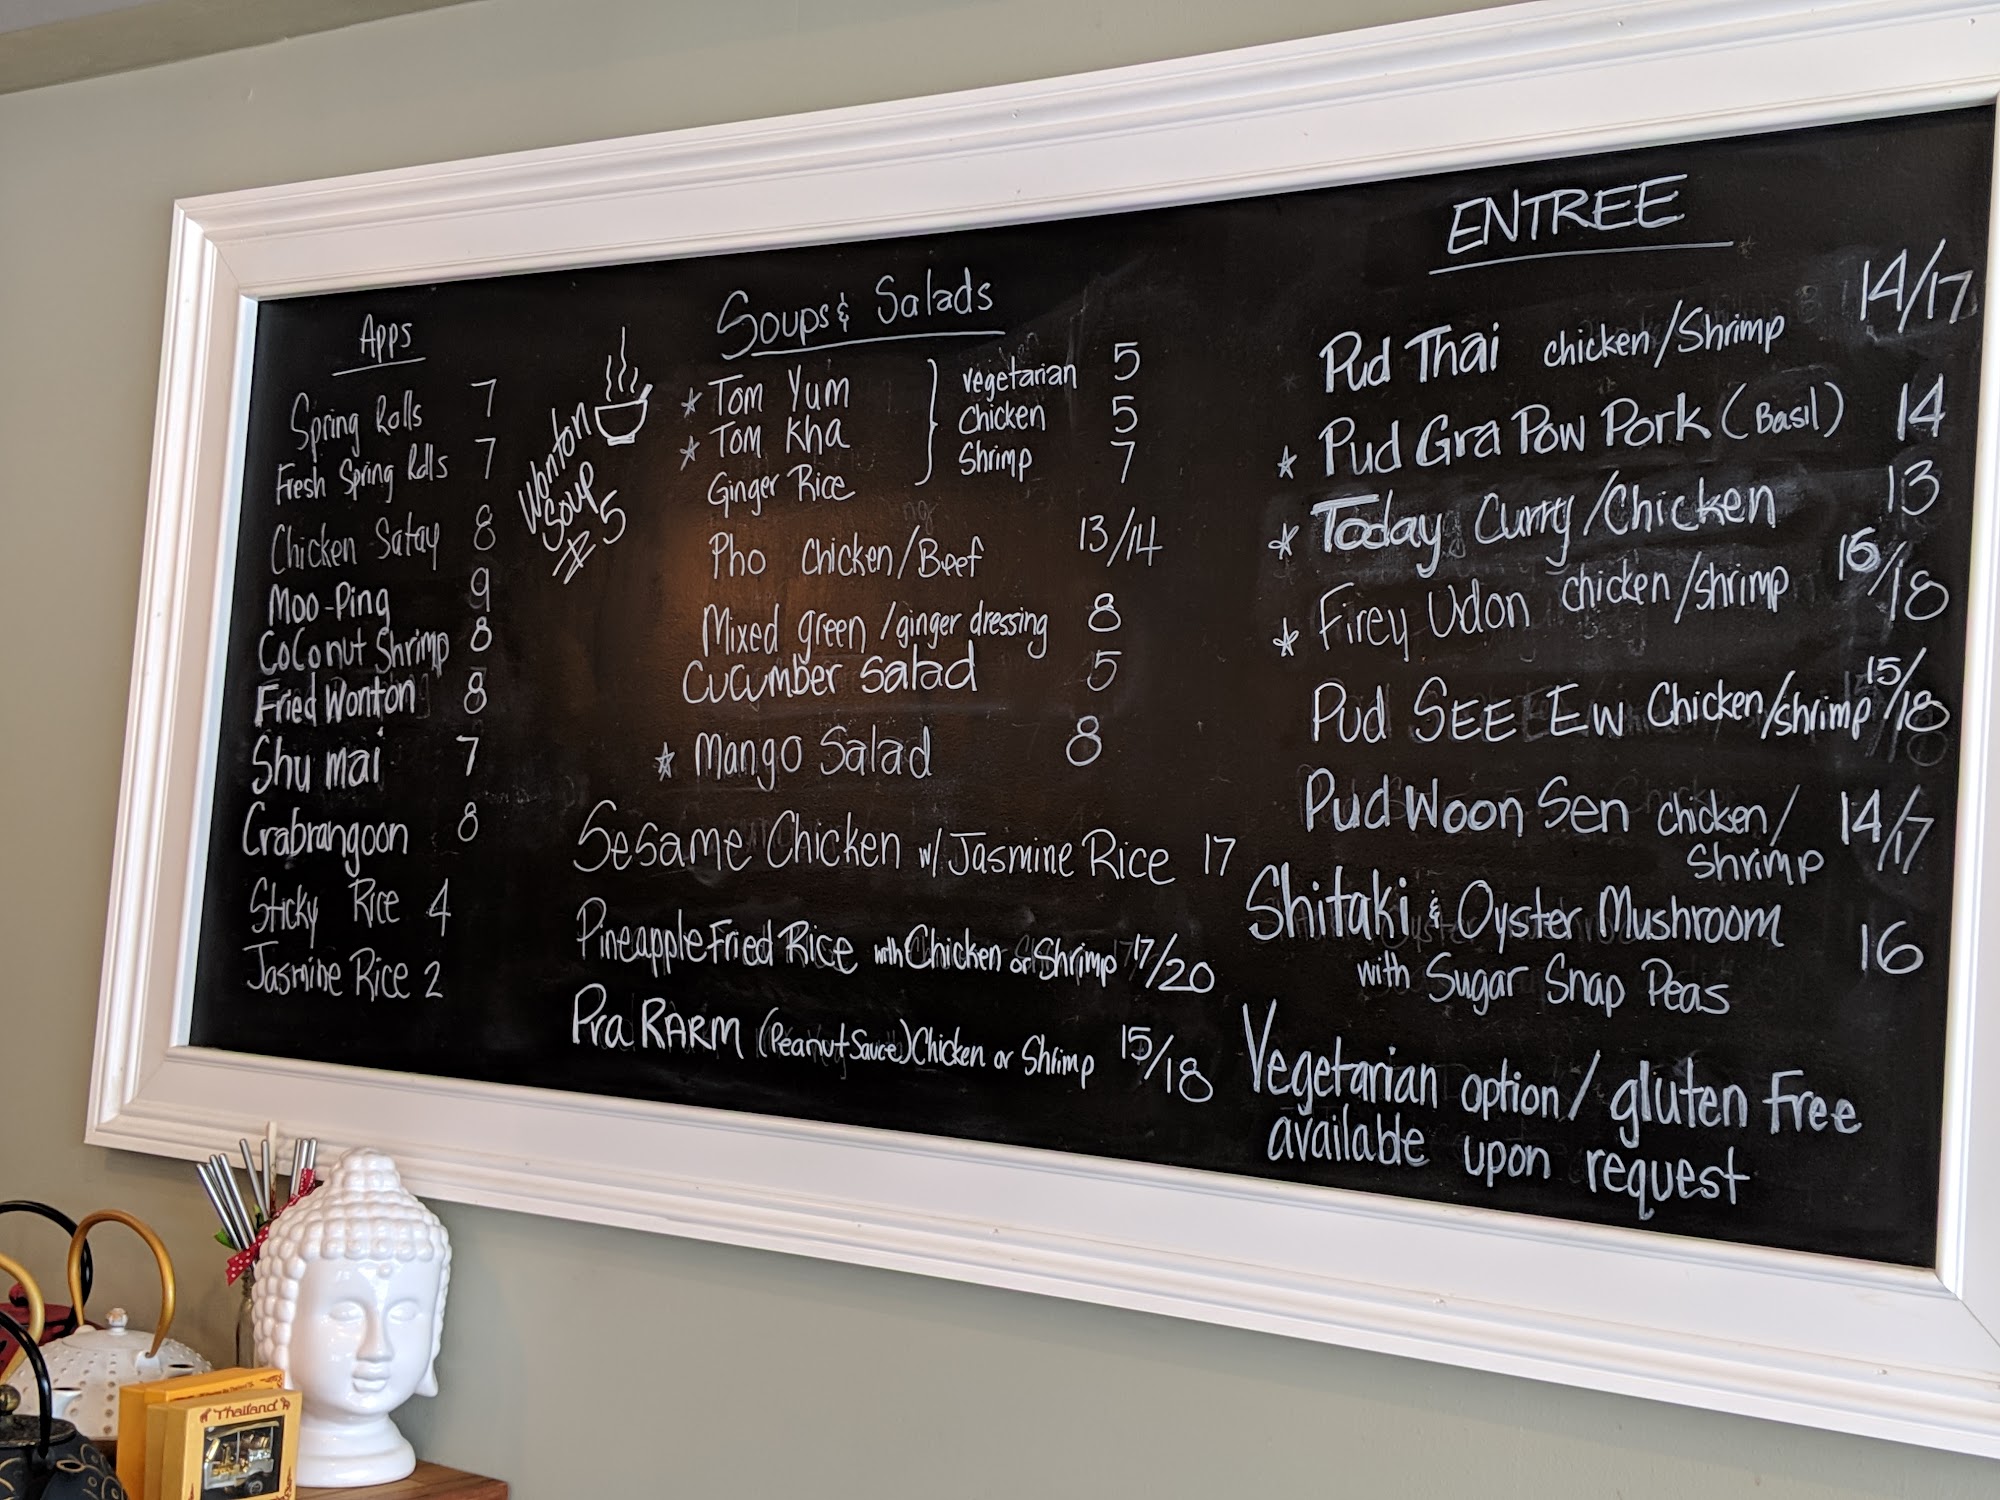 Apps
Spring Rolls 7
Fresh Spring Rolls 7
Chicken Satay 8
Moo-Ping 9
Coconut Shrimp 8
Fried Wonton 8
Shu mai 7
Crabrangoon 8
Sticky Rice 4
Jasmine Rice 2
Wonton
Soup
$5
Soups & Salads
★ Tom Yum
★ Tom Kha
Ginger Rice
Vegetarian 5
Chicken 5
Shrimp 7
Pho Chicken/Beef 13/14
Mixed green/ginger dressing 8
Cucumber Salad 5
★ Mango Salad 8
Sesame Chicken w/ Jasmine Rice 17
Pineapple Fried Rice with Chicken or Shrimp 17/20
Pra RARM (Peanut Sauce) Chicken or Shrimp 15/18
ENTREE
Pud Thai chicken/Shrimp 14/17
★ Pud Gra Pow Pork (Basil) 14
★ Today Curry/Chicken 13
★ Firey Udon chicken/shrimp 16/18
Pud SEE EW Chicken/shrimp 15/18
Pud Woon Sen chicken/ 14/17
Shrimp
Shitaki & Oyster Mushroom
with Sugar Snap Peas 16
Vegetarian option/gluten Free
available upon request
Thailand